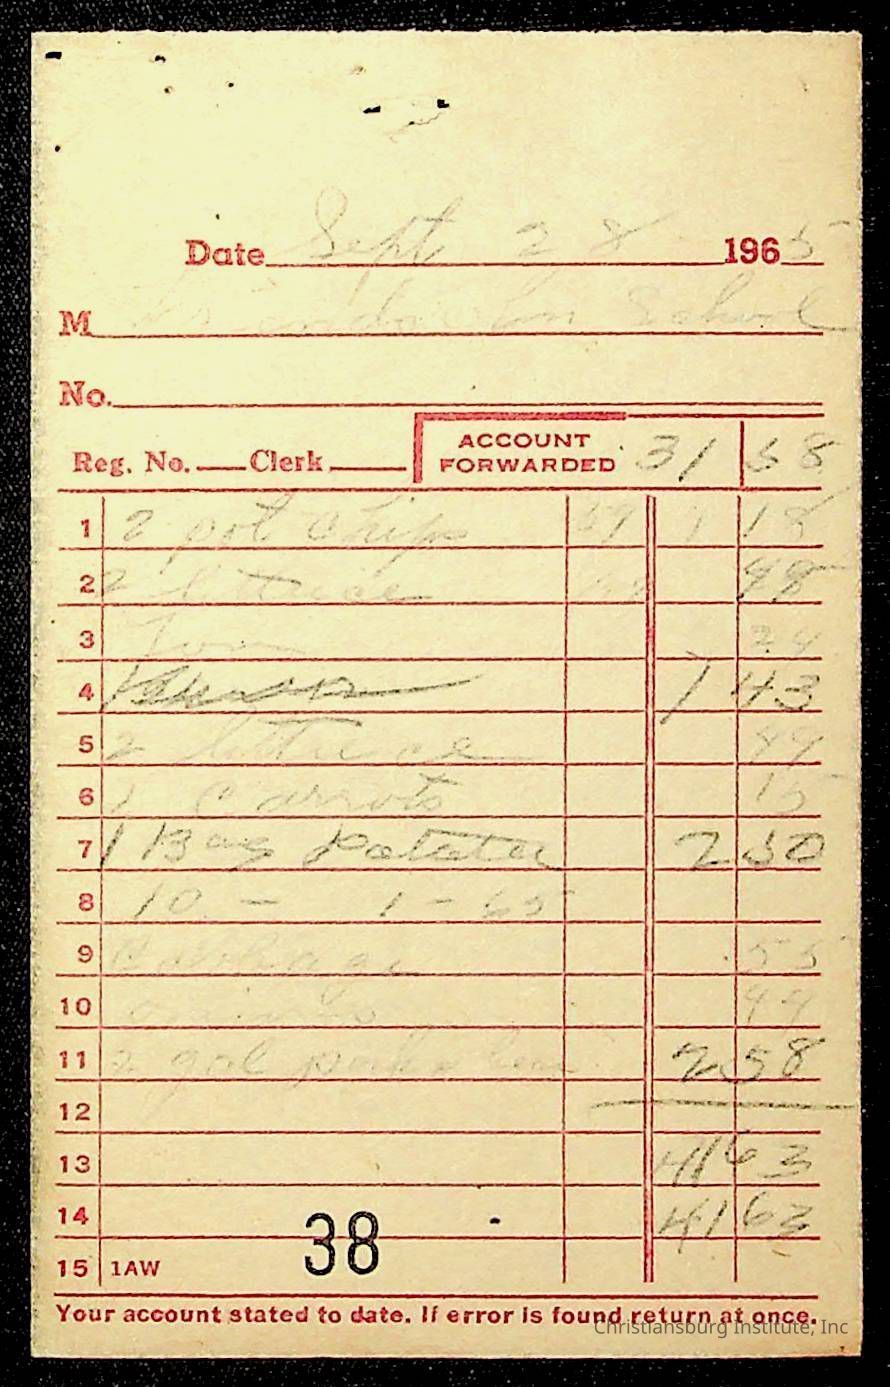 Date Sept 28 1965
M School
No.
Reg. No. Clerk ACCOUNT FORWARDED 31 58
1 2 pot chips 59 1 18
2 2 lettuce 48
3 24
4 1 43
5 2 lettuce 49
6 1 Carrots 15
7 1 Bag Potatoe 2 50
8 10 - 1 - 65
9 Cabbage 55
10 onions 49
11 2 gal 2 58
12
13 41 63
14 41 63
15 1AW 38
Your account stated to date. If error is found return at once.
Christiansburg Institute, Inc